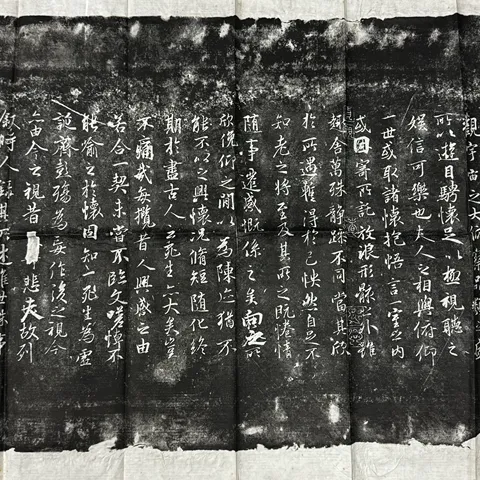 觀宇宙之大俯察品類之盛
所以遊目騁懷足以極視聽之
娛信可樂也夫人之相與俯仰
一世或取諸懷抱悟言一室之內
或因寄所託放浪形骸之外雖
趣舍萬殊靜躁不同當其欣
於所遇蹔得於己怏然自足不
知老之將至及其所之既惓情
隨事遷感慨係之矣向之所
欣俛仰之閒以為陳迹猶不
能不以之興懷況脩短隨化終
期於盡古人云死生亦大矣豈
不痛哉每攬昔人興感之由
若合一契未嘗不臨文嗟悼不
能喻之於懷固知一死生為虛
誕齊彭殤為妄作後之視今
亦由今之視昔悲夫故列
敘時人錄其所述雖世殊事